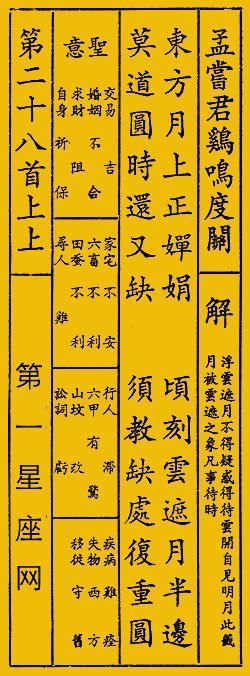 孟嘗君鷄鳴度關
解
浮雲遮月不得疑惑得待雲開自見明月此籤
月被雲遮之象凡事待時
東方月上正嬋娟　頃刻雲遮月半邊
莫道圓時還又缺　須教缺處復重圓
聖意
交易　吉
婚姻　不合
求財　阻
自身　祈保
家宅　不安
六畜　不利
田蚕　不利
尋人　難
行人　滯
六甲　有驚
山坟　改
訟詞　虧
疾病　難痊
失物　西方
移徙　守舊
第二十八首上上
第一星座网